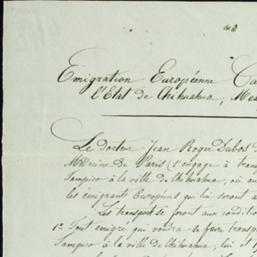 Emigration Européenne
l'Etat de Chihuahua, Mex
Le docteur Jean Roger Dubos
Médecine de Paris s'engage à trans
Tampico à la ville de Chihuahua, où
les émigrants Européens qui lui seront
Les transports se feront aux condition
1º Tout émigré qui voudra se faire transp
Tampico à la ville de Chihuahua, lui